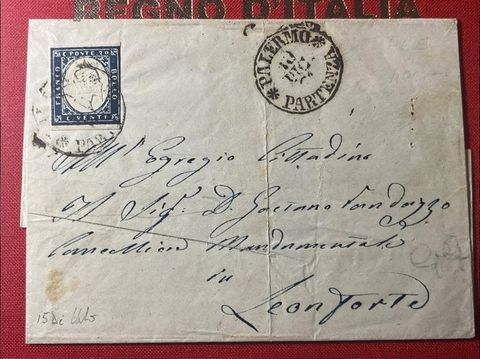 REGNO D'ITALIA
C. POSTE 20
FRANCO
BOLLO
C. VENTI
* PALERMO *
10
DIC
PARTENZA
All' Egregio Cittadino
Il Sig. D. Gaetano Fandazzo
Cancelliere Mandamentale
in
Leonforte